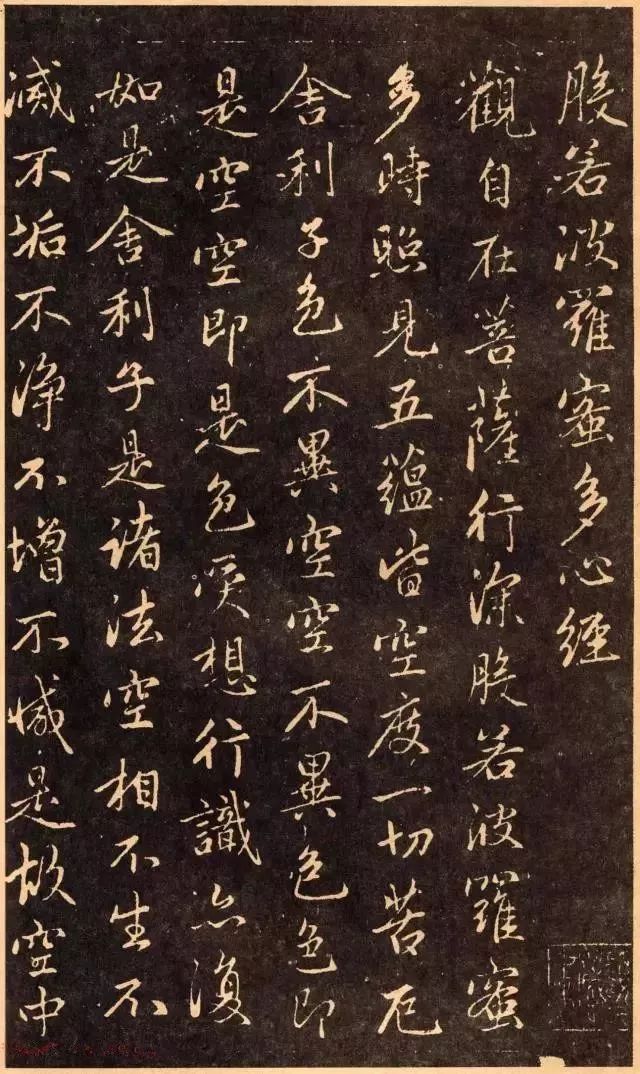 般若波羅蜜多心經
觀自在菩薩行深般若波羅蜜
多時照見五蘊皆空度一切苦厄
舍利子色不異空空不異色色即
是空空即是色受想行識亦復
如是舍利子是諸法空相不生不
滅不垢不淨不增不減是故空中